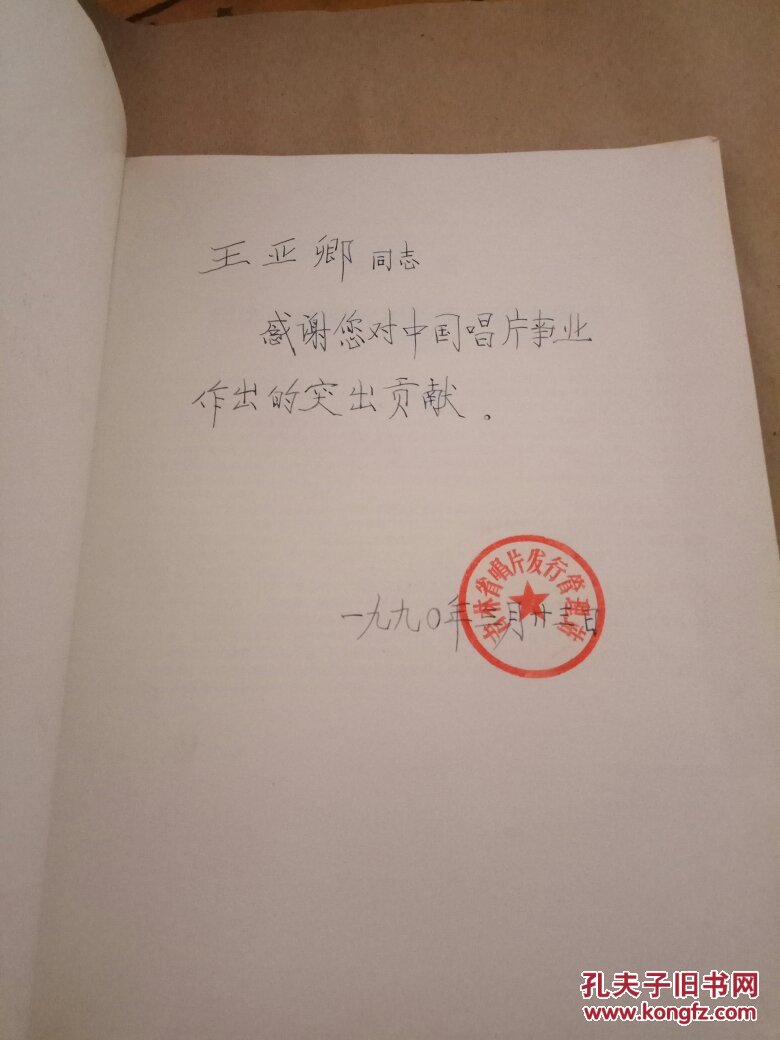 王亚卿同志
感谢您对中国唱片事业
作出的突出贡献。
吉林省唱片发行管理站
一九九〇年三月廿三日
孔夫子旧书网
www.kongfz.com